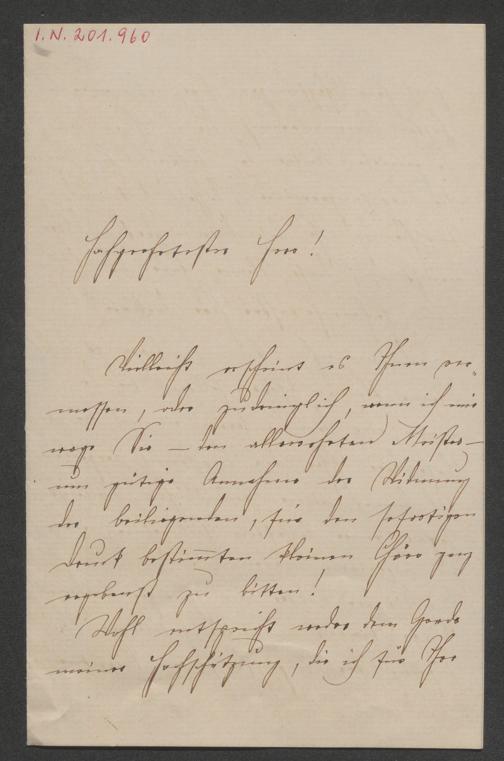 I. N. 201.960
Hochgeehrtester Herr!
Vielleicht erscheint es Ihnen ver-
messen, oder zudringlich, wenn ich mir
wage Sie – den allverehrten Meister –
um gütige Annahme der Widmung
der beiliegenden, für den sofortigen
Druck bestimmten kleinen Chöre ganz
ergebenst zu bitten!
Wohl entspricht weder dem Grade
meiner Hochschätzung, die ich für Ihre